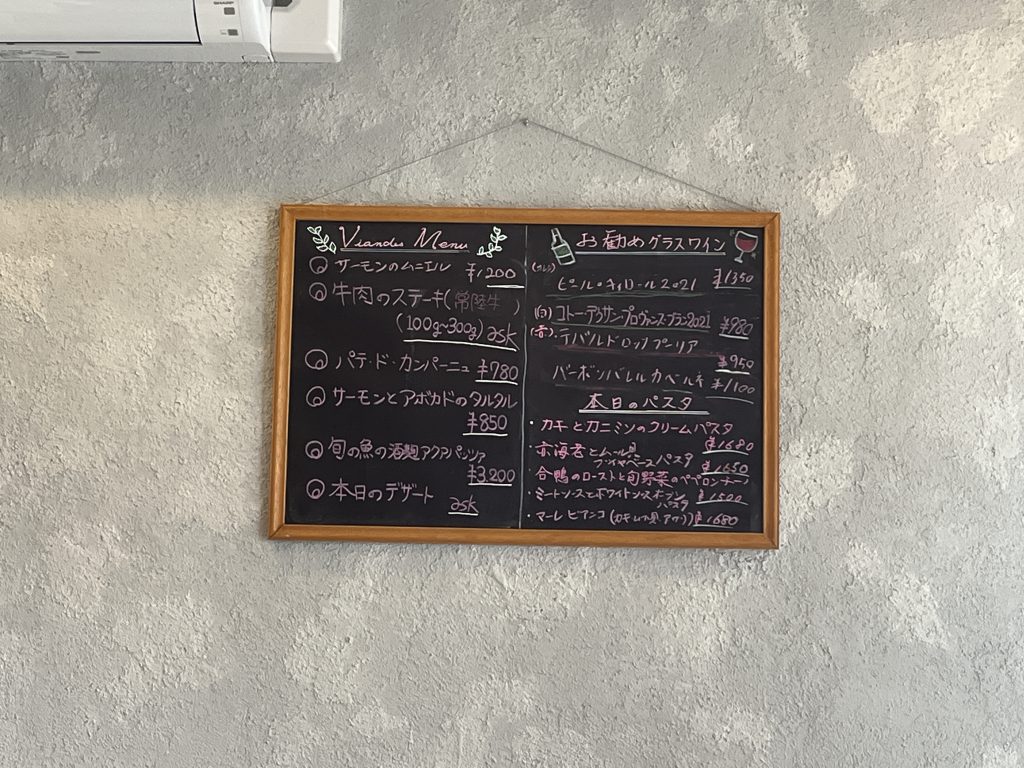 SHARP
Viandes Menu
サーモンのムニエル ¥1,200
牛肉のステーキ(常陸牛)
(100g~300g) ask
パテ・ド・カンパーニュ ¥780
サーモンとアボカドのタルタル
¥850
旬の魚の酒麹アクアパッツァ
¥3,200
本日のデザート
ask
お勧めグラスワイン
¥1350
2021
(白)コトー・デクサンプロヴァンス・ブラン2021
¥980
(赤)・テバルド ロッソ プーリア
¥950
バーボンバレルカベルネ ¥1100
本日のパスタ
・カキとカニミソのクリームパスタ
¥1680
・赤海老とムール貝
ブイヤベースパスタ ¥1650
・合鴨のローストと旬野菜のペペロンチーノ
・ミートソースとホワイトソース ¥1500
パスタ
・マーレビアンコ(カキムール貝アサリ)¥1680